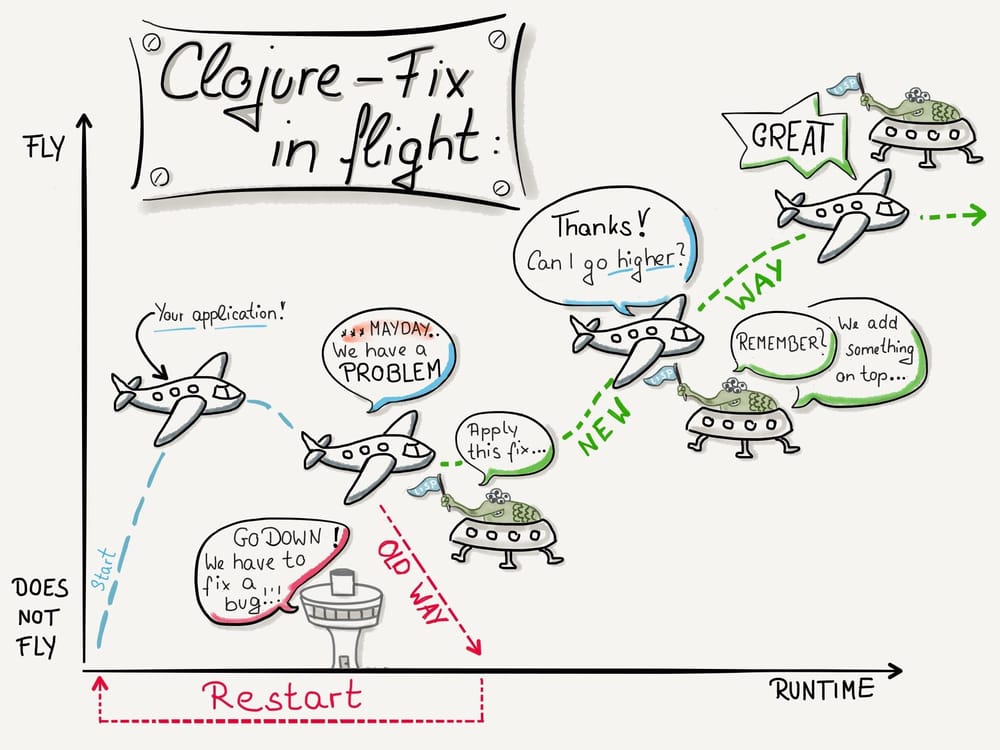 Clojure - Fix
in flight:
FLY
GREAT
Thanks!
Can I go higher?
WAY
Your application!
*** MAYDAY..
We have a
PROBLEM
REMEMBER?
We add
something
on top...
Apply
this fix...
NEW
GO DOWN!
We have to
fix a
bug!!!
OLD WAY
Start
DOES
NOT
FLY
RUNTIME
Restart